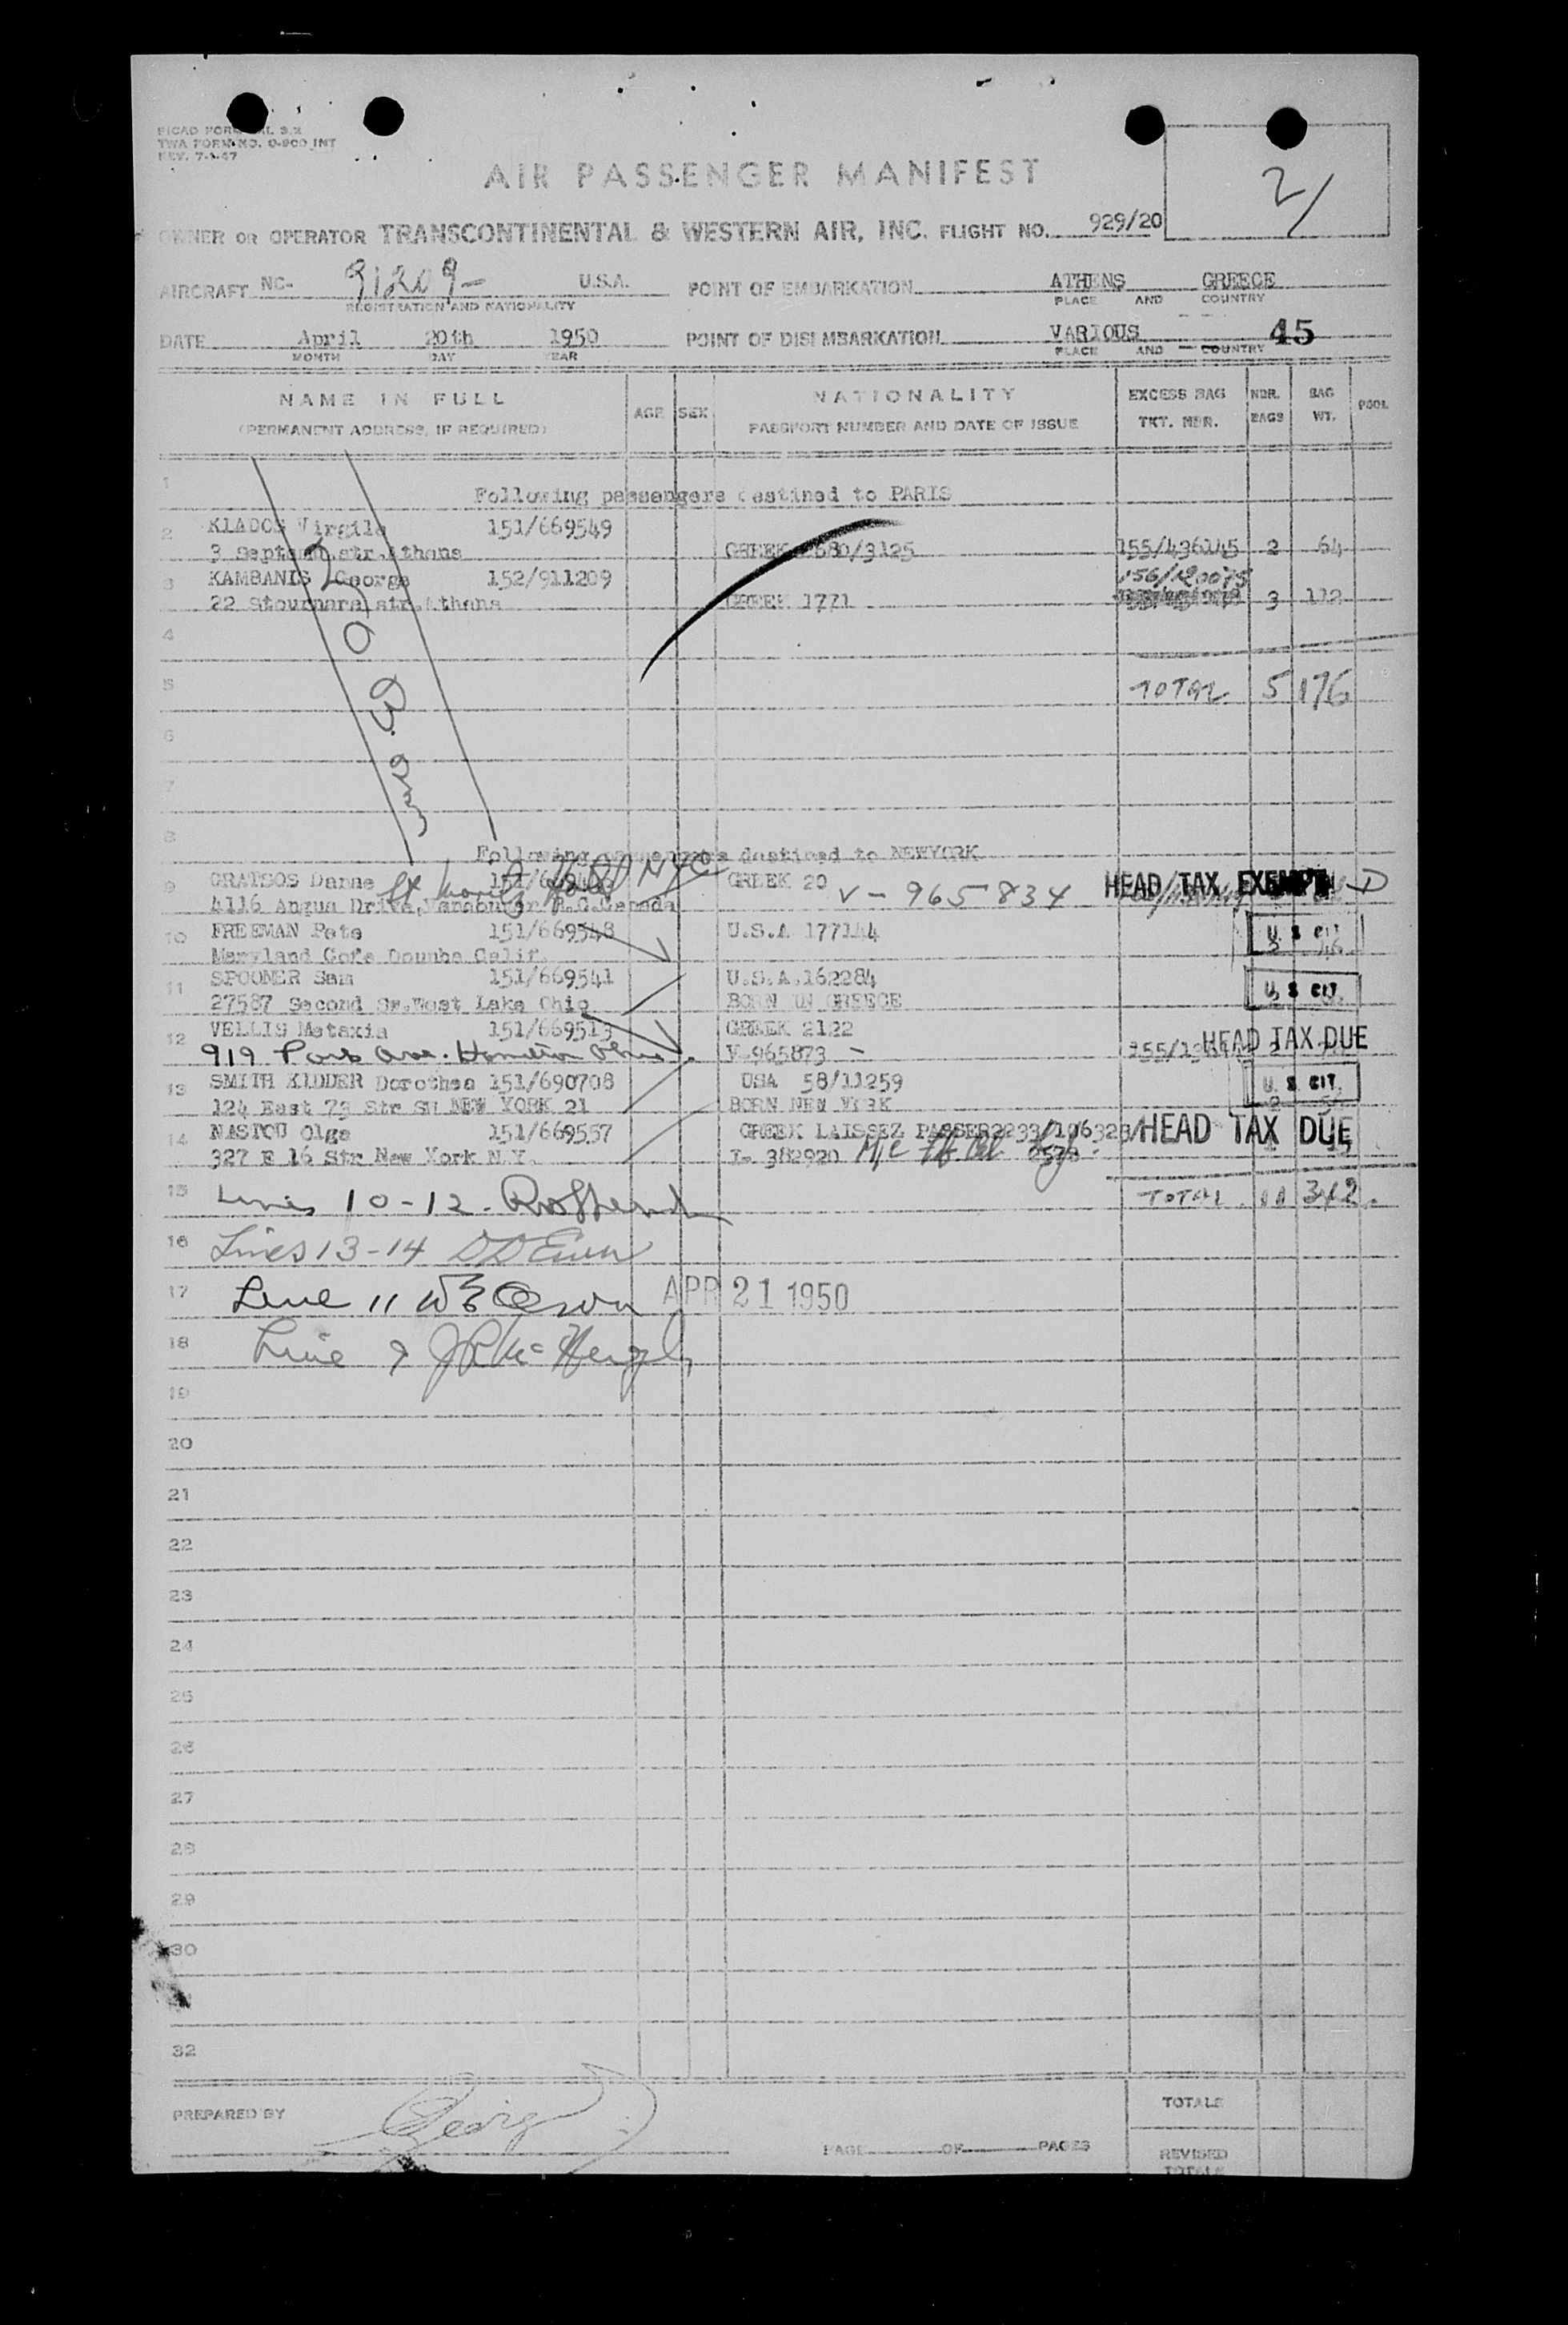 TWA FORM NO. 0-900 INT
REV. 7-1-47
AIR PASSENGER MANIFEST
2/
OWNER OR OPERATOR TRANSCONTINENTAL & WESTERN AIR, INC. FLIGHT NO. 929/20
AIRCRAFT NC- 91209- U.S.A. POINT OF EMBARKATION ATHENS GREECE
REGISTRATION AND NATIONALITY PLACE AND COUNTRY
DATE April 20th 1950 POINT OF DISEMBARKATION VARIOUS 45
MONTH DAY YEAR PLACE AND COUNTRY
NAME IN FULL AGE SEX NATIONALITY EXCESS BAG NBR. BAG POOL
(PERMANENT ADDRESS, IF REQUIRED) PASSPORT NUMBER AND DATE OF ISSUE TKT. NBR. BAGS WT.
1 Following passengers destined to PARIS
2 KLADOS Virgile 151/669549
3 str.Athens GREEK /3125 155/436145 2 64
3 KAMBANIS George 152/911209 156/120075
22 Stournara str.Athens GREEK 1771 3 112
4
5 TOTAL 5 176
6
7
8 Following passengers destined to NEWYORK
9 GRATSOS Danne GREEK 20 V - 965834 HEAD TAX EXEMPT
4116 Angus Drive, Vancouver B.C.Canada
NYC
10 FREEMAN Pete 151/669548 U.S.A 177144 U. S. CIT.
Maryland Calif.
11 SPOONER Sam 151/669541 U.S.A.162284 U. S. CIT.
27587 Second West Lake Ohio BORN IN GREECE
12 VELLIS Metaxia 151/669513 GREEK 2122 HEAD TAX DUE
919 Park Ave. Hamilton Ohio. V.965873 - 155/
13 SMITH KIDDER Dorothea 151/690708 USA 58/11259 U. S. CIT.
124 East 73 Str NEW YORK 21 BORN NEW YORK
14 NASTOU Olga 151/669557 GREEK LAISSEZ PASSER2233/106323/ HEAD TAX DUE
327 E 16 Str New York N.Y. I- 382920
15 Lines 10-12. TOTAL 11 342.
16 Lines 13-14
17 Line 11 APR 21 1950
18 Line 9
19
20
21
22
23
24
25
26
27
28
29
30
32
PREPARED BY TOTALS
PAGE OF PAGES REVISED
TOTALS